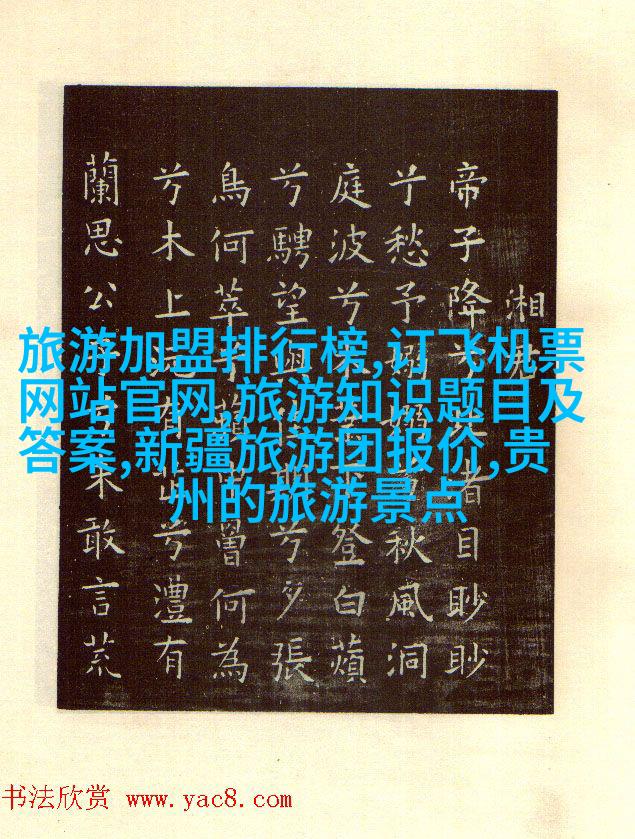 湘
帝子降兮北渚目眇眇
兮愁予嫋嫋兮秋風洞
庭波兮木葉下登白蘋
兮騁望與佳期兮夕張
鳥何萃兮蘋中罾何為
兮木上沅有芷兮澧有
蘭思公子兮未敢言荒
旅游加盟排行榜,订飞机票
网站官网,旅游知识题目及
答案,新疆旅游团报价,贵
州的旅游景点
书法欣赏 www.yac8.com